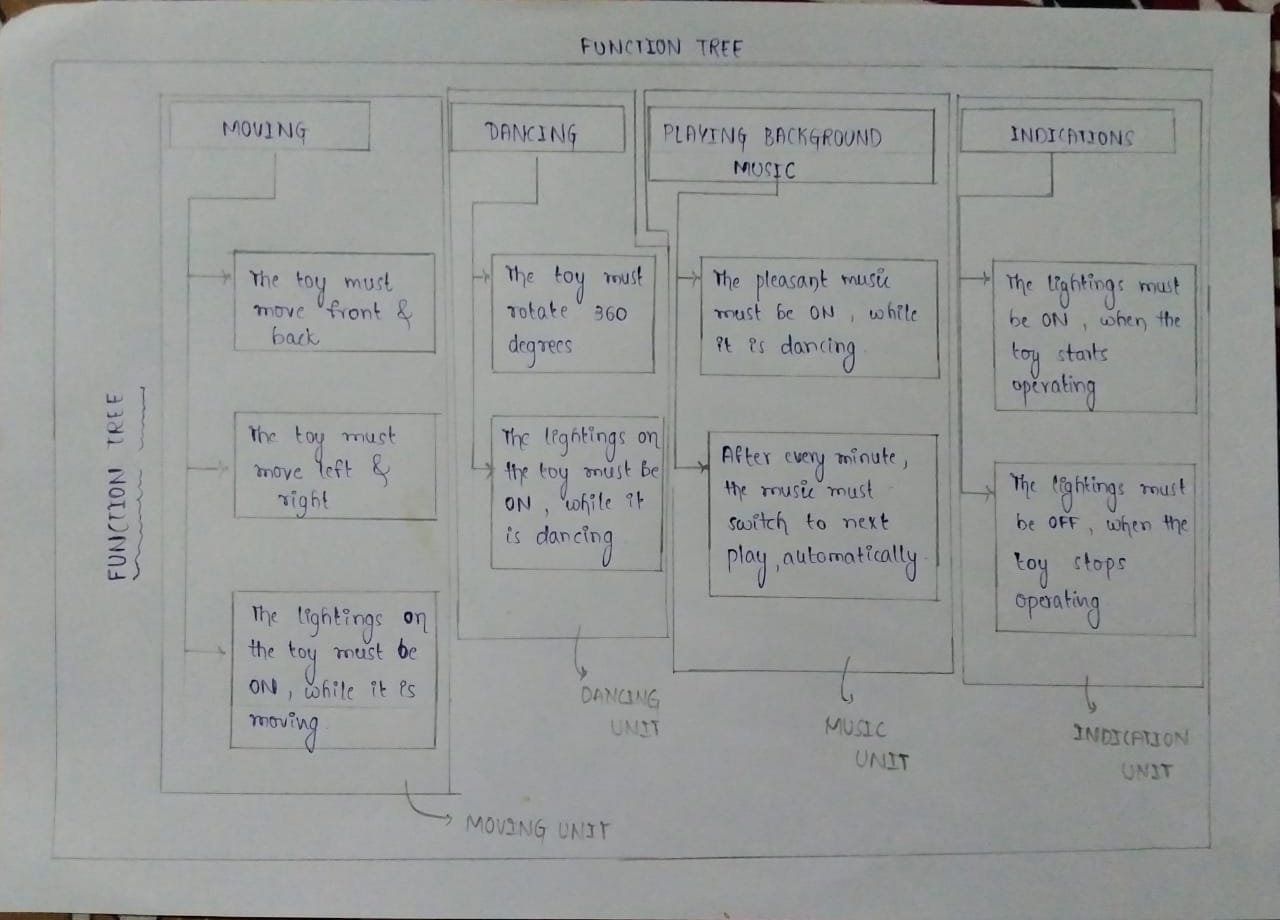 FUNCTION TREE
FUNCTION TREE
MOVING
The toy must
move front &
back
The toy must
move left &
right
The lightings on
the toy must be
ON, while it is
moving.
MOVING UNIT
DANCING
The toy must
rotate 360
degrees
The lightings on
the toy must be
ON, while it
is dancing
DANCING
UNIT
PLAYING BACKGROUND
MUSIC
The pleasant music
must be ON, while
it is dancing.
After every minute,
the music must
switch to next
play, automatically.
MUSIC
UNIT
INDICATIONS
The lightings must
be ON, when the
toy starts
operating
The lightings must
be OFF, when the
toy stops
operating
INDICATION
UNIT